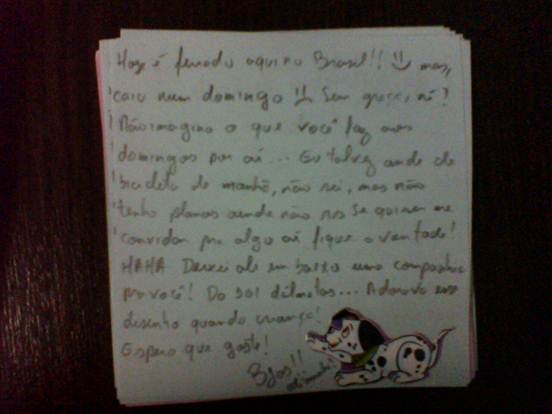 Hoje é feriado aqui no Brasil!! mas,
caiu num domingo Sem graça, né?
Não imagino o que você faz aos
domingos por aí... Eu talvez ande de
bicicleta de manhã, não sei, mas não
tenho planos ainda não rs Se quiser me
convidar pra algo aí fique a vontade!
HAHA Deixei ali em baixo uma companhia
pra você! Do 101 dálmatas... Adorava esse
desenho quando criança!
Espero que goste!
Bjos!!